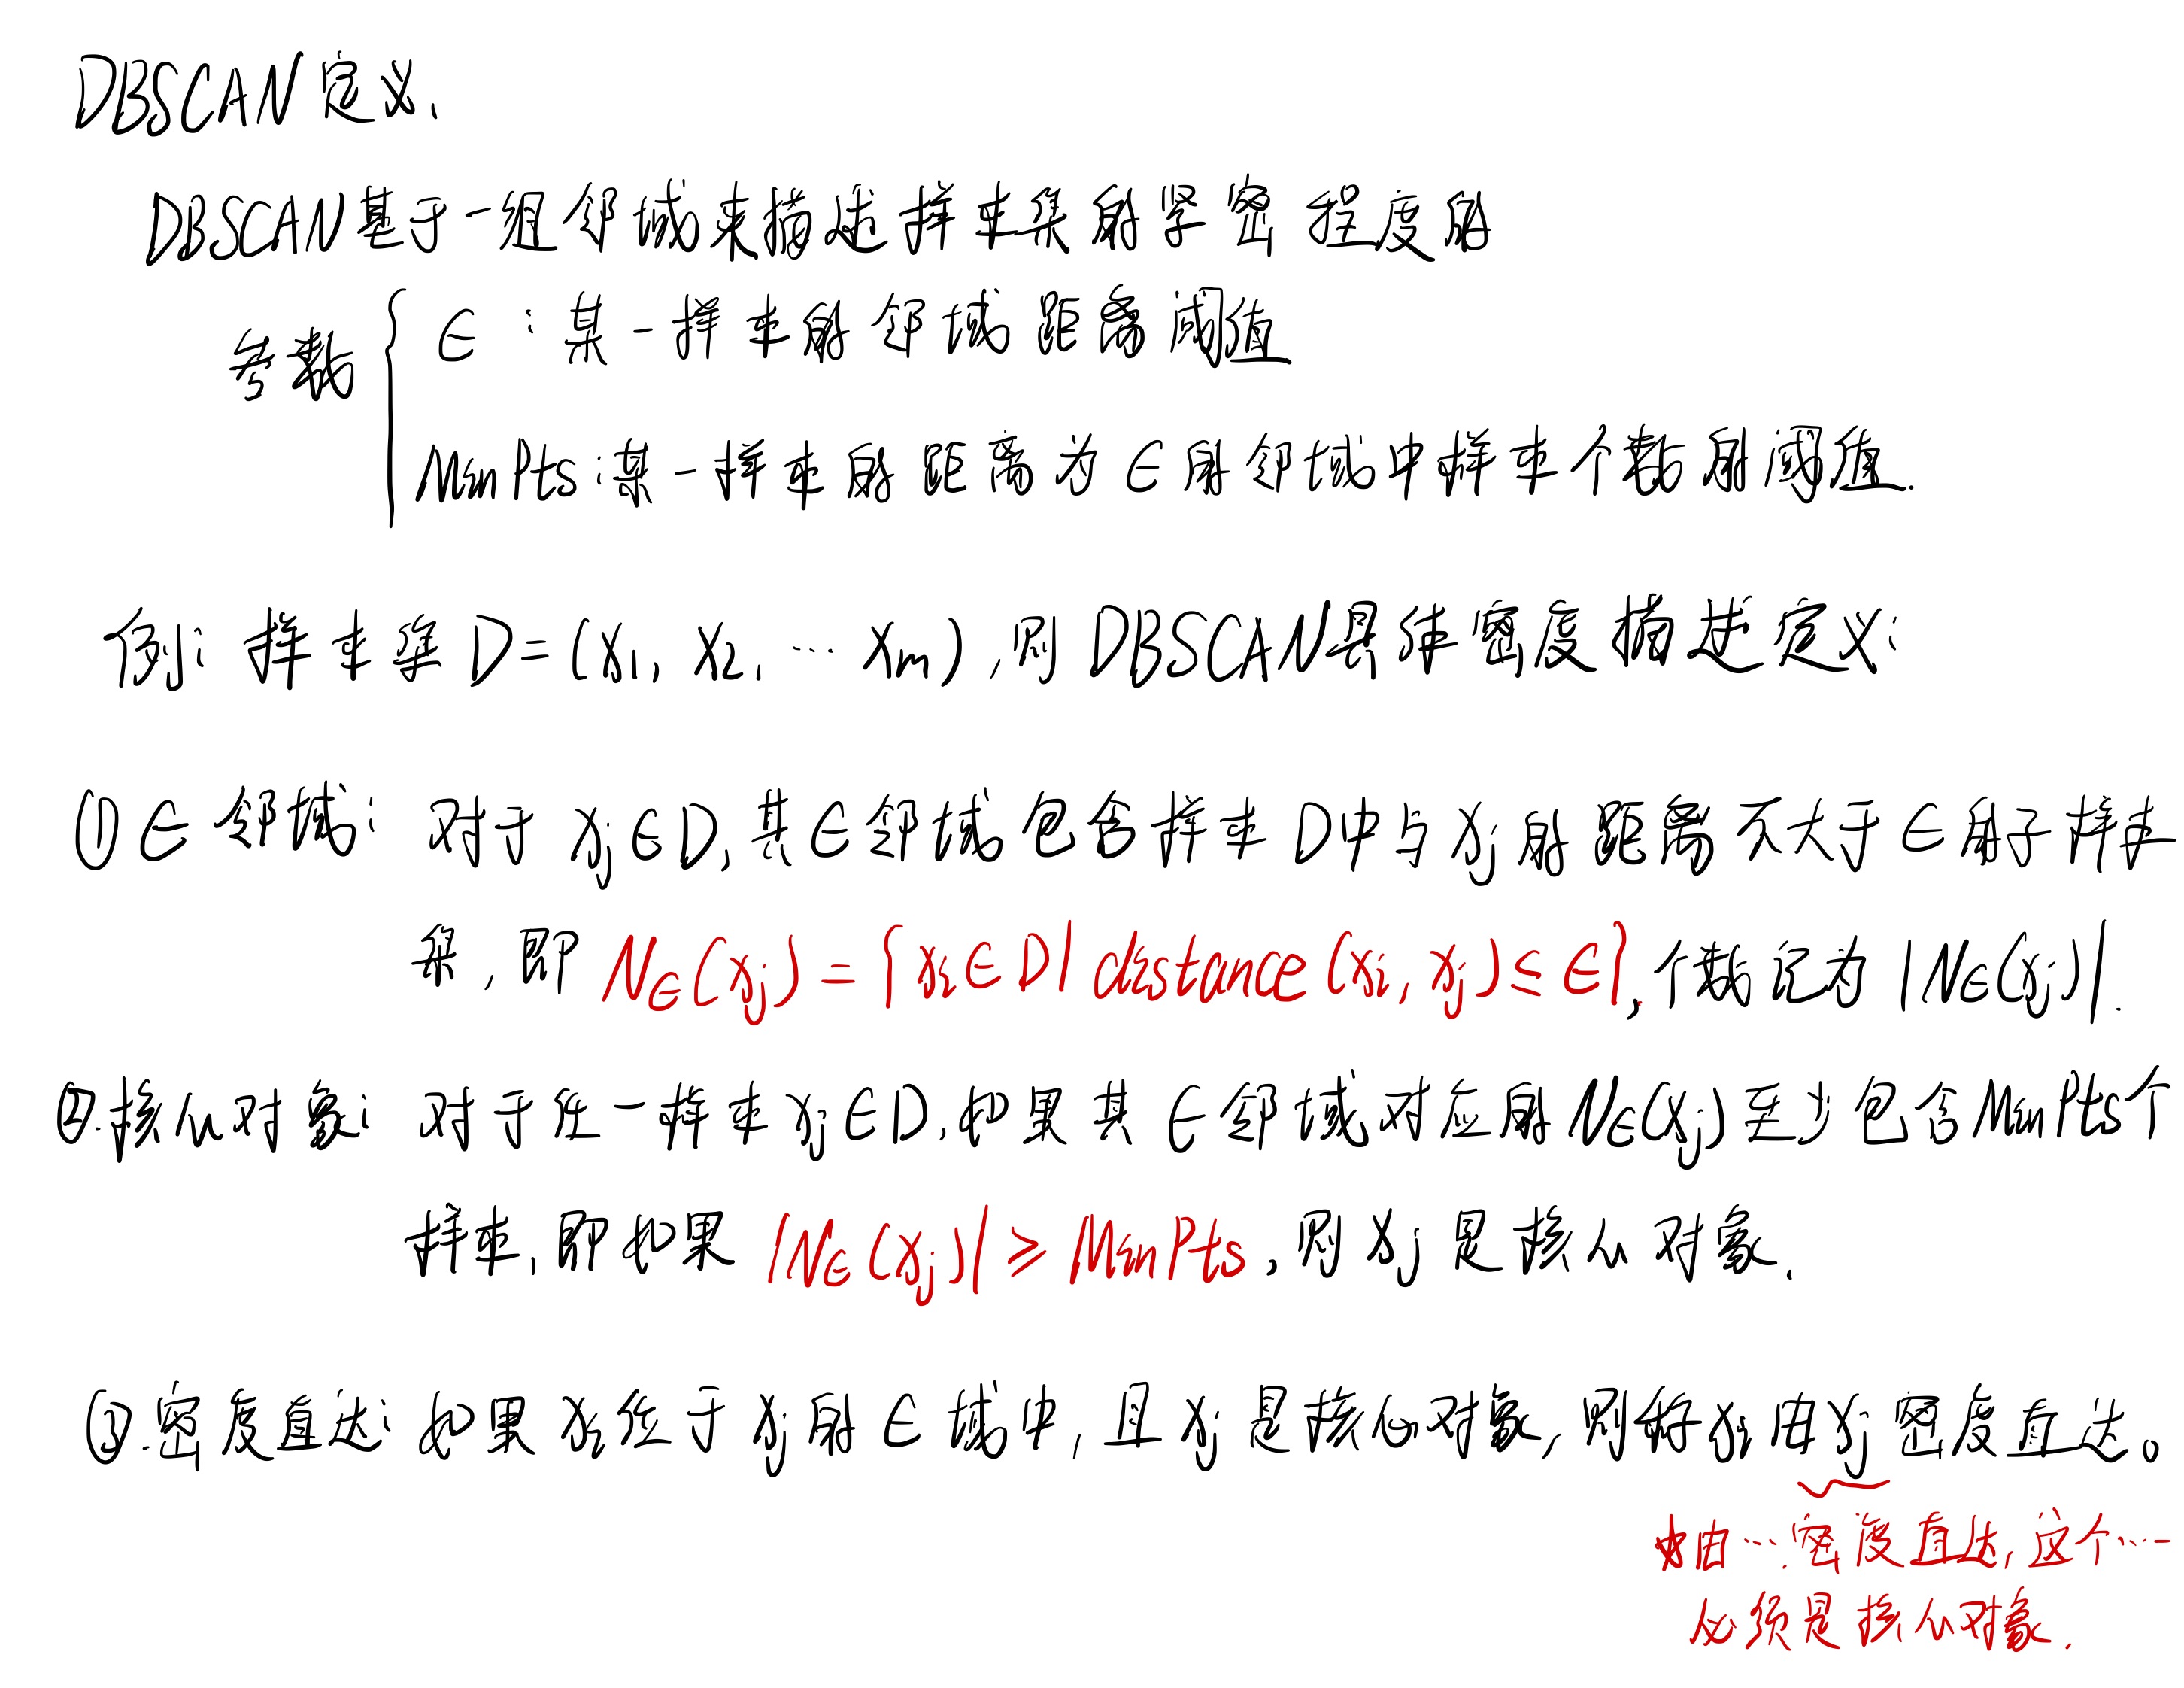 DBSCAN定义.
DBSCAN基于一组邻域来描述样本集的紧密程度的
参数 { ∈：某一样本的邻域距离阈值
MinPts：某一样本的距离为∈的邻域中样本个数的阈值.
例：样本集D=(x₁, x₂, … xₘ), 则DBSCAN具体密度描述定义：
① ∈邻域：对于xⱼ∈D, 其∈邻域包含样本D中与xⱼ的距离不大于∈的子样本
集, 即 N∈(xⱼ) = {xᵢ∈D | distance(xᵢ, xⱼ) ≤ ∈}, 个数记为 |N∈(xⱼ)|.
②.核心对象：对于任一样本xⱼ∈D, 如果其∈邻域对应的N∈(xⱼ)至少包含MinPts个
样本, 即如果 |N∈(xⱼ)| ≥ MinPts, 则xⱼ是核心对象.
③.密度直达：如果xᵢ位于xⱼ的∈域中, 且xⱼ是核心对象, 则称xᵢ由xⱼ密度直达。
★由…密度直达, 这个…
必须是核心对象.